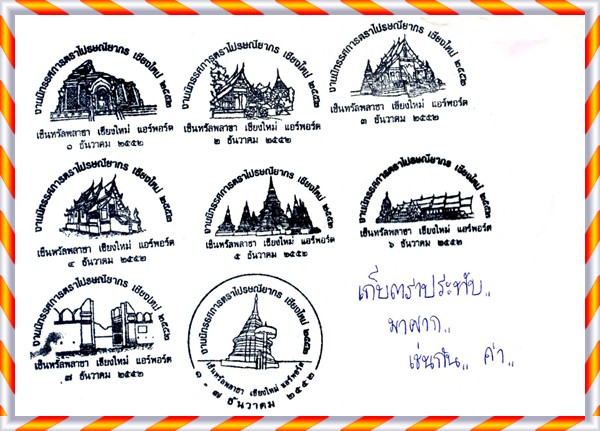 งานนิทรรศการตราไปรษณียากร เชียงใหม่ ๒๕๕๒
เซ็นทรัลพลาซา เชียงใหม่ แอร์พอร์ต
๑ ธันวาคม ๒๕๕๒
งานนิทรรศการตราไปรษณียากร เชียงใหม่ ๒๕๕๒
เซ็นทรัลพลาซา เชียงใหม่ แอร์พอร์ต
๒ ธันวาคม ๒๕๕๒
งานนิทรรศการตราไปรษณียากร เชียงใหม่ ๒๕๕๒
เซ็นทรัลพลาซา เชียงใหม่ แอร์พอร์ต
๓ ธันวาคม ๒๕๕๒
งานนิทรรศการตราไปรษณียากร เชียงใหม่ ๒๕๕๒
เซ็นทรัลพลาซา เชียงใหม่ แอร์พอร์ต
๔ ธันวาคม ๒๕๕๒
งานนิทรรศการตราไปรษณียากร เชียงใหม่ ๒๕๕๒
เซ็นทรัลพลาซา เชียงใหม่ แอร์พอร์ต
๕ ธันวาคม ๒๕๕๒
งานนิทรรศการตราไปรษณียากร เชียงใหม่ ๒๕๕๒
เซ็นทรัลพลาซา เชียงใหม่ แอร์พอร์ต
๖ ธันวาคม ๒๕๕๒
งานนิทรรศการตราไปรษณียากร เชียงใหม่ ๒๕๕๒
เซ็นทรัลพลาซา เชียงใหม่ แอร์พอร์ต
๗ ธันวาคม ๒๕๕๒
งานนิทรรศการตราไปรษณียากร เชียงใหม่ ๒๕๕๒
เซ็นทรัลพลาซา เชียงใหม่ แอร์พอร์ต
๑ - ๗ ธันวาคม ๒๕๕๒
เก็บตราประทับ..
มาฝาก..
เช่นกัน.. ค่า..